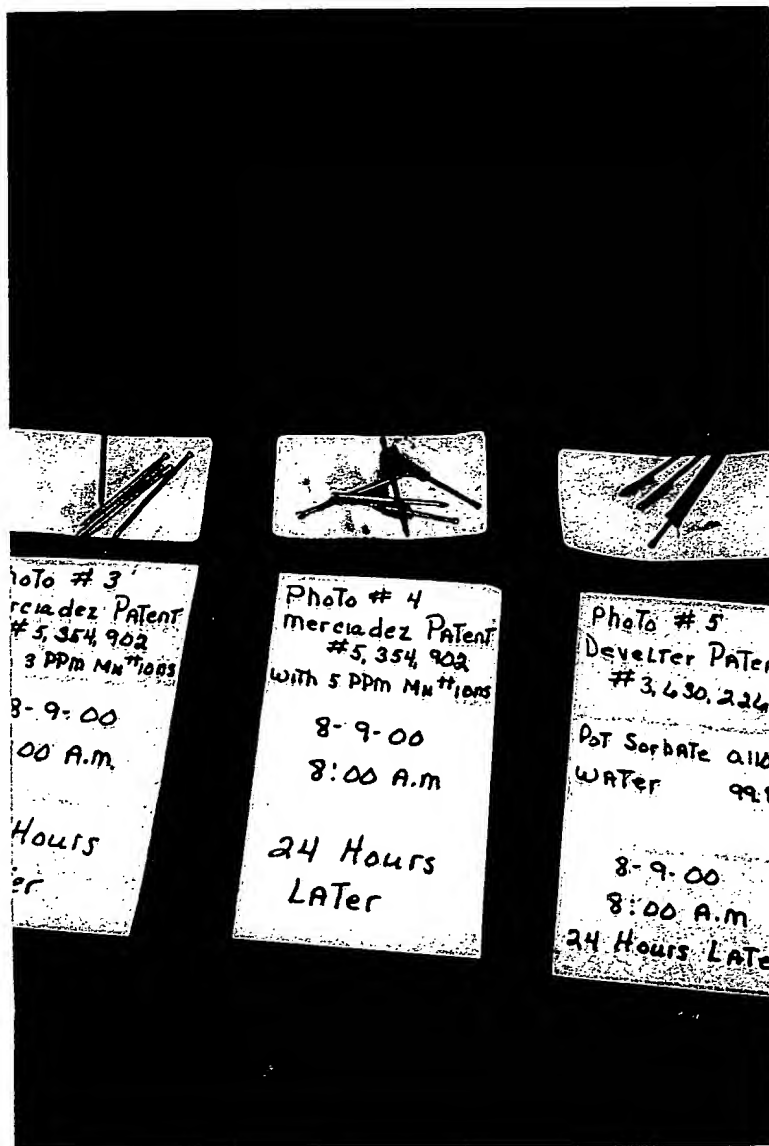 hoTo # 3
rciadez PATenT
# 5, 354, 902
3 PPm Mn ++ions
8-9-00
:00 A.m.
Hours
er
PhoTo # 4
merciadez PATenT
#5, 354, 902
with 5 PPm Mn ++ions
8-9-00
8:00 A.m
24 Hours
LATer
PhoTo # 5
DeveLTer PATen
#3,630,226
PoT SorbATe 0.110
WATer 99.
8-9-00
8:00 A.m
24 Hours LATe